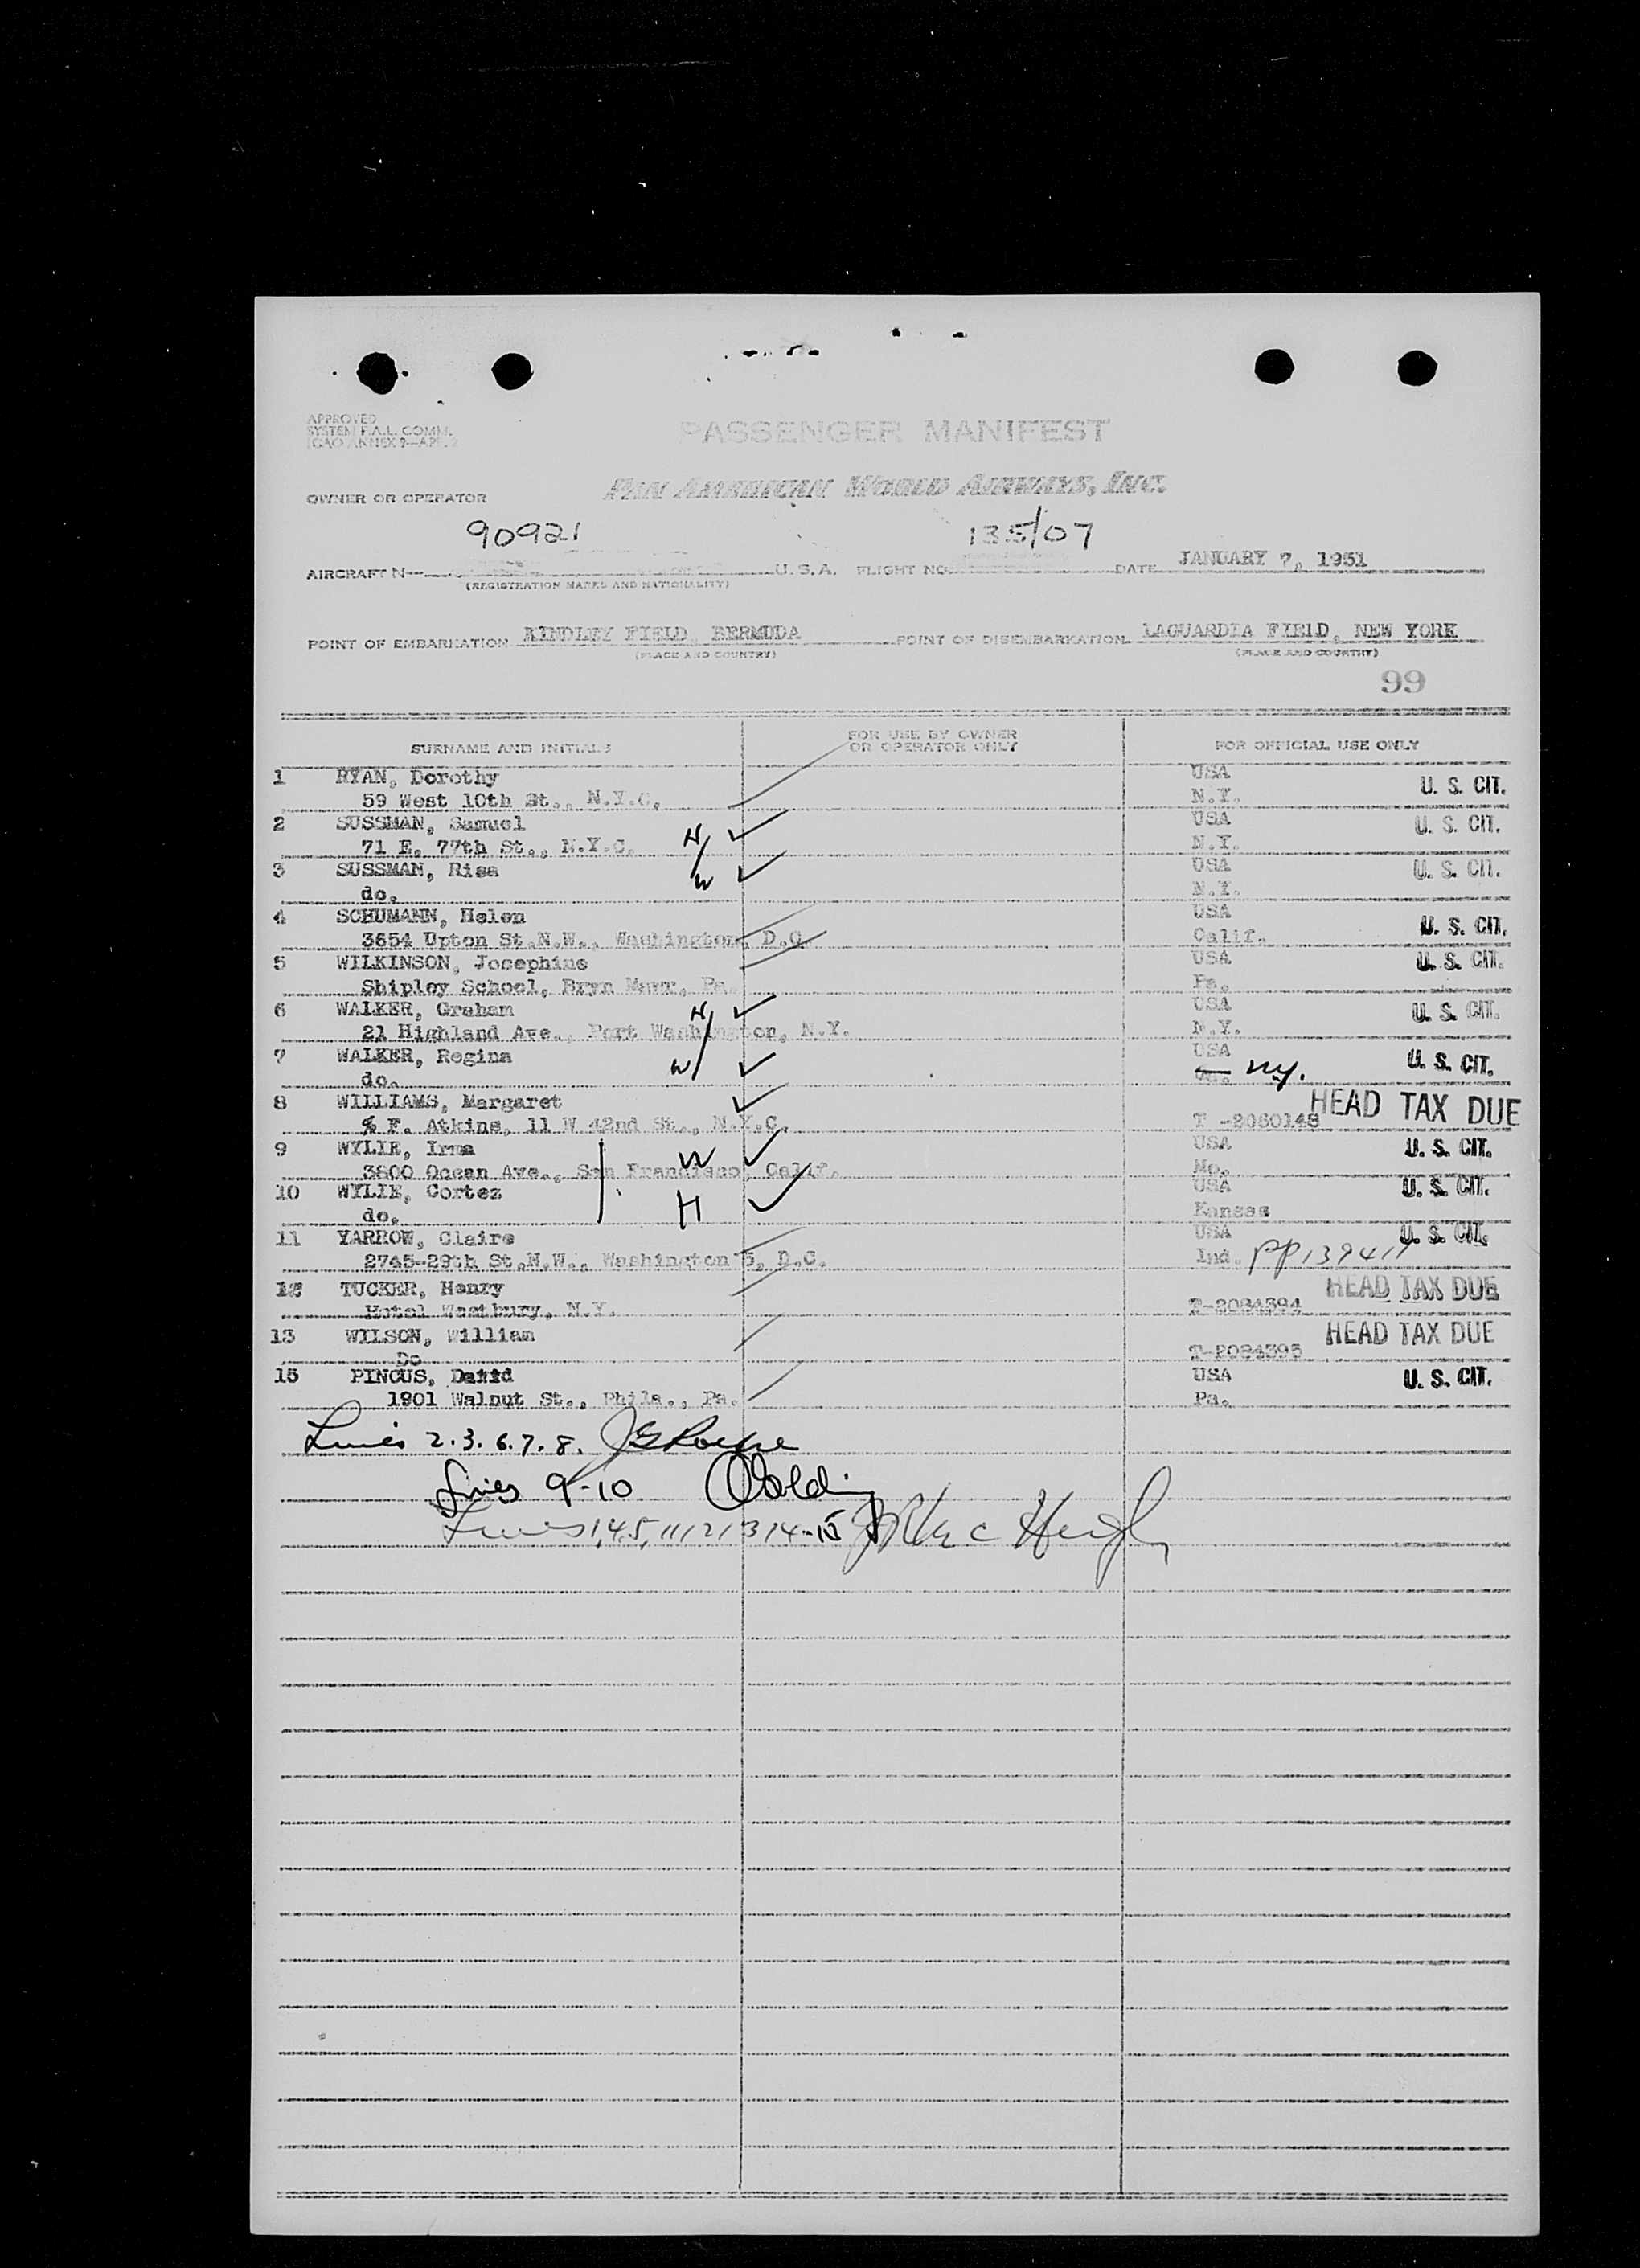 APPROVED
SYSTEM F.A.L. COMM.
ICAO ANNEX 9—APP. 2
PASSENGER MANIFEST
OWNER OR OPERATOR PAN AMERICAN WORLD AIRWAYS, INC.
90921 135/07
AIRCRAFT N— U.S.A. FLIGHT NO. DATE JANUARY 7, 1951
(REGISTRATION MARKS AND NATIONALITY)
POINT OF EMBARKATION KINDLEY FIELD, BERMUDA POINT OF DISEMBARKATION LAGUARDIA FIELD, NEW YORK
(PLACE AND COUNTRY) (PLACE AND COUNTRY)
99
SURNAME AND INITIALS FOR USE BY OWNER OR OPERATOR ONLY FOR OFFICIAL USE ONLY
1 RYAN, Dorothy USA U. S. CIT.
59 West 10th St., N.Y.C. N.Y.
2 SUSSMAN, Samuel USA U. S. CIT.
71 E. 77th St., N.Y.C. H N.Y.
3 SUSSMAN, Risa W USA U. S. CIT.
do. N.Y.
4 SCHUMANN, Helen USA U. S. CIT.
3654 Upton St.N.W., Washington, D.C. Calif.
5 WILKINSON, Josephine USA U. S. CIT.
Shipley School, Bryn Mawr, Pa. Pa.
6 WALKER, Graham H USA U. S. CIT.
21 Highland Ave., Port Washington, N.Y. N.Y.
7 WALKER, Regina W USA U. S. CIT.
do. N.Y.
8 WILLIAMS, Margaret HEAD TAX DUE
% F. Atkins, 11 W 42nd St., N.Y.C. T -2060148
9 WYLIE, Irma W USA U. S. CIT.
3800 Ocean Ave., San Francisco, Calif. Mo.
10 WYLIE, Cortez H USA U. S. CIT.
do. Kansas
11 YARROW, Claire USA U. S. CIT.
2745-29th St.N.W., Washington 5, D.C. Ind. PP139411
12 TUCKER, Henry HEAD TAX DUE
Hotel Westbury, N.Y. T-2084394
13 WILSON, William HEAD TAX DUE
Do T-2084395
15 PINCUS, David USA U. S. CIT.
1901 Walnut St., Phila., Pa. Pa.
Lines 2.3.6.7.8.
Lines 9-10
Lines 1,4,5,11 12 13 14-15